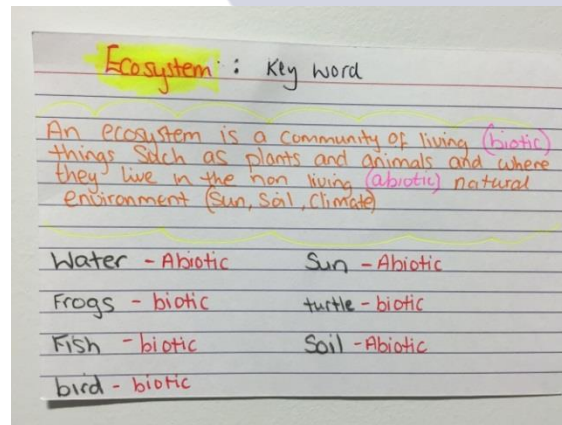 Ecosystem : Key word
An ecosystem is a community of living (biotic)
things Sdch as plants and animals and where
they live in the non living (abiotic) natural
environment (Sun, Soil, Climate)
Water - Abiotic Sun - Abiotic
Frogs - biotic turtle - biotic
Fish - biotic Soil - Abiotic
bird - biotic